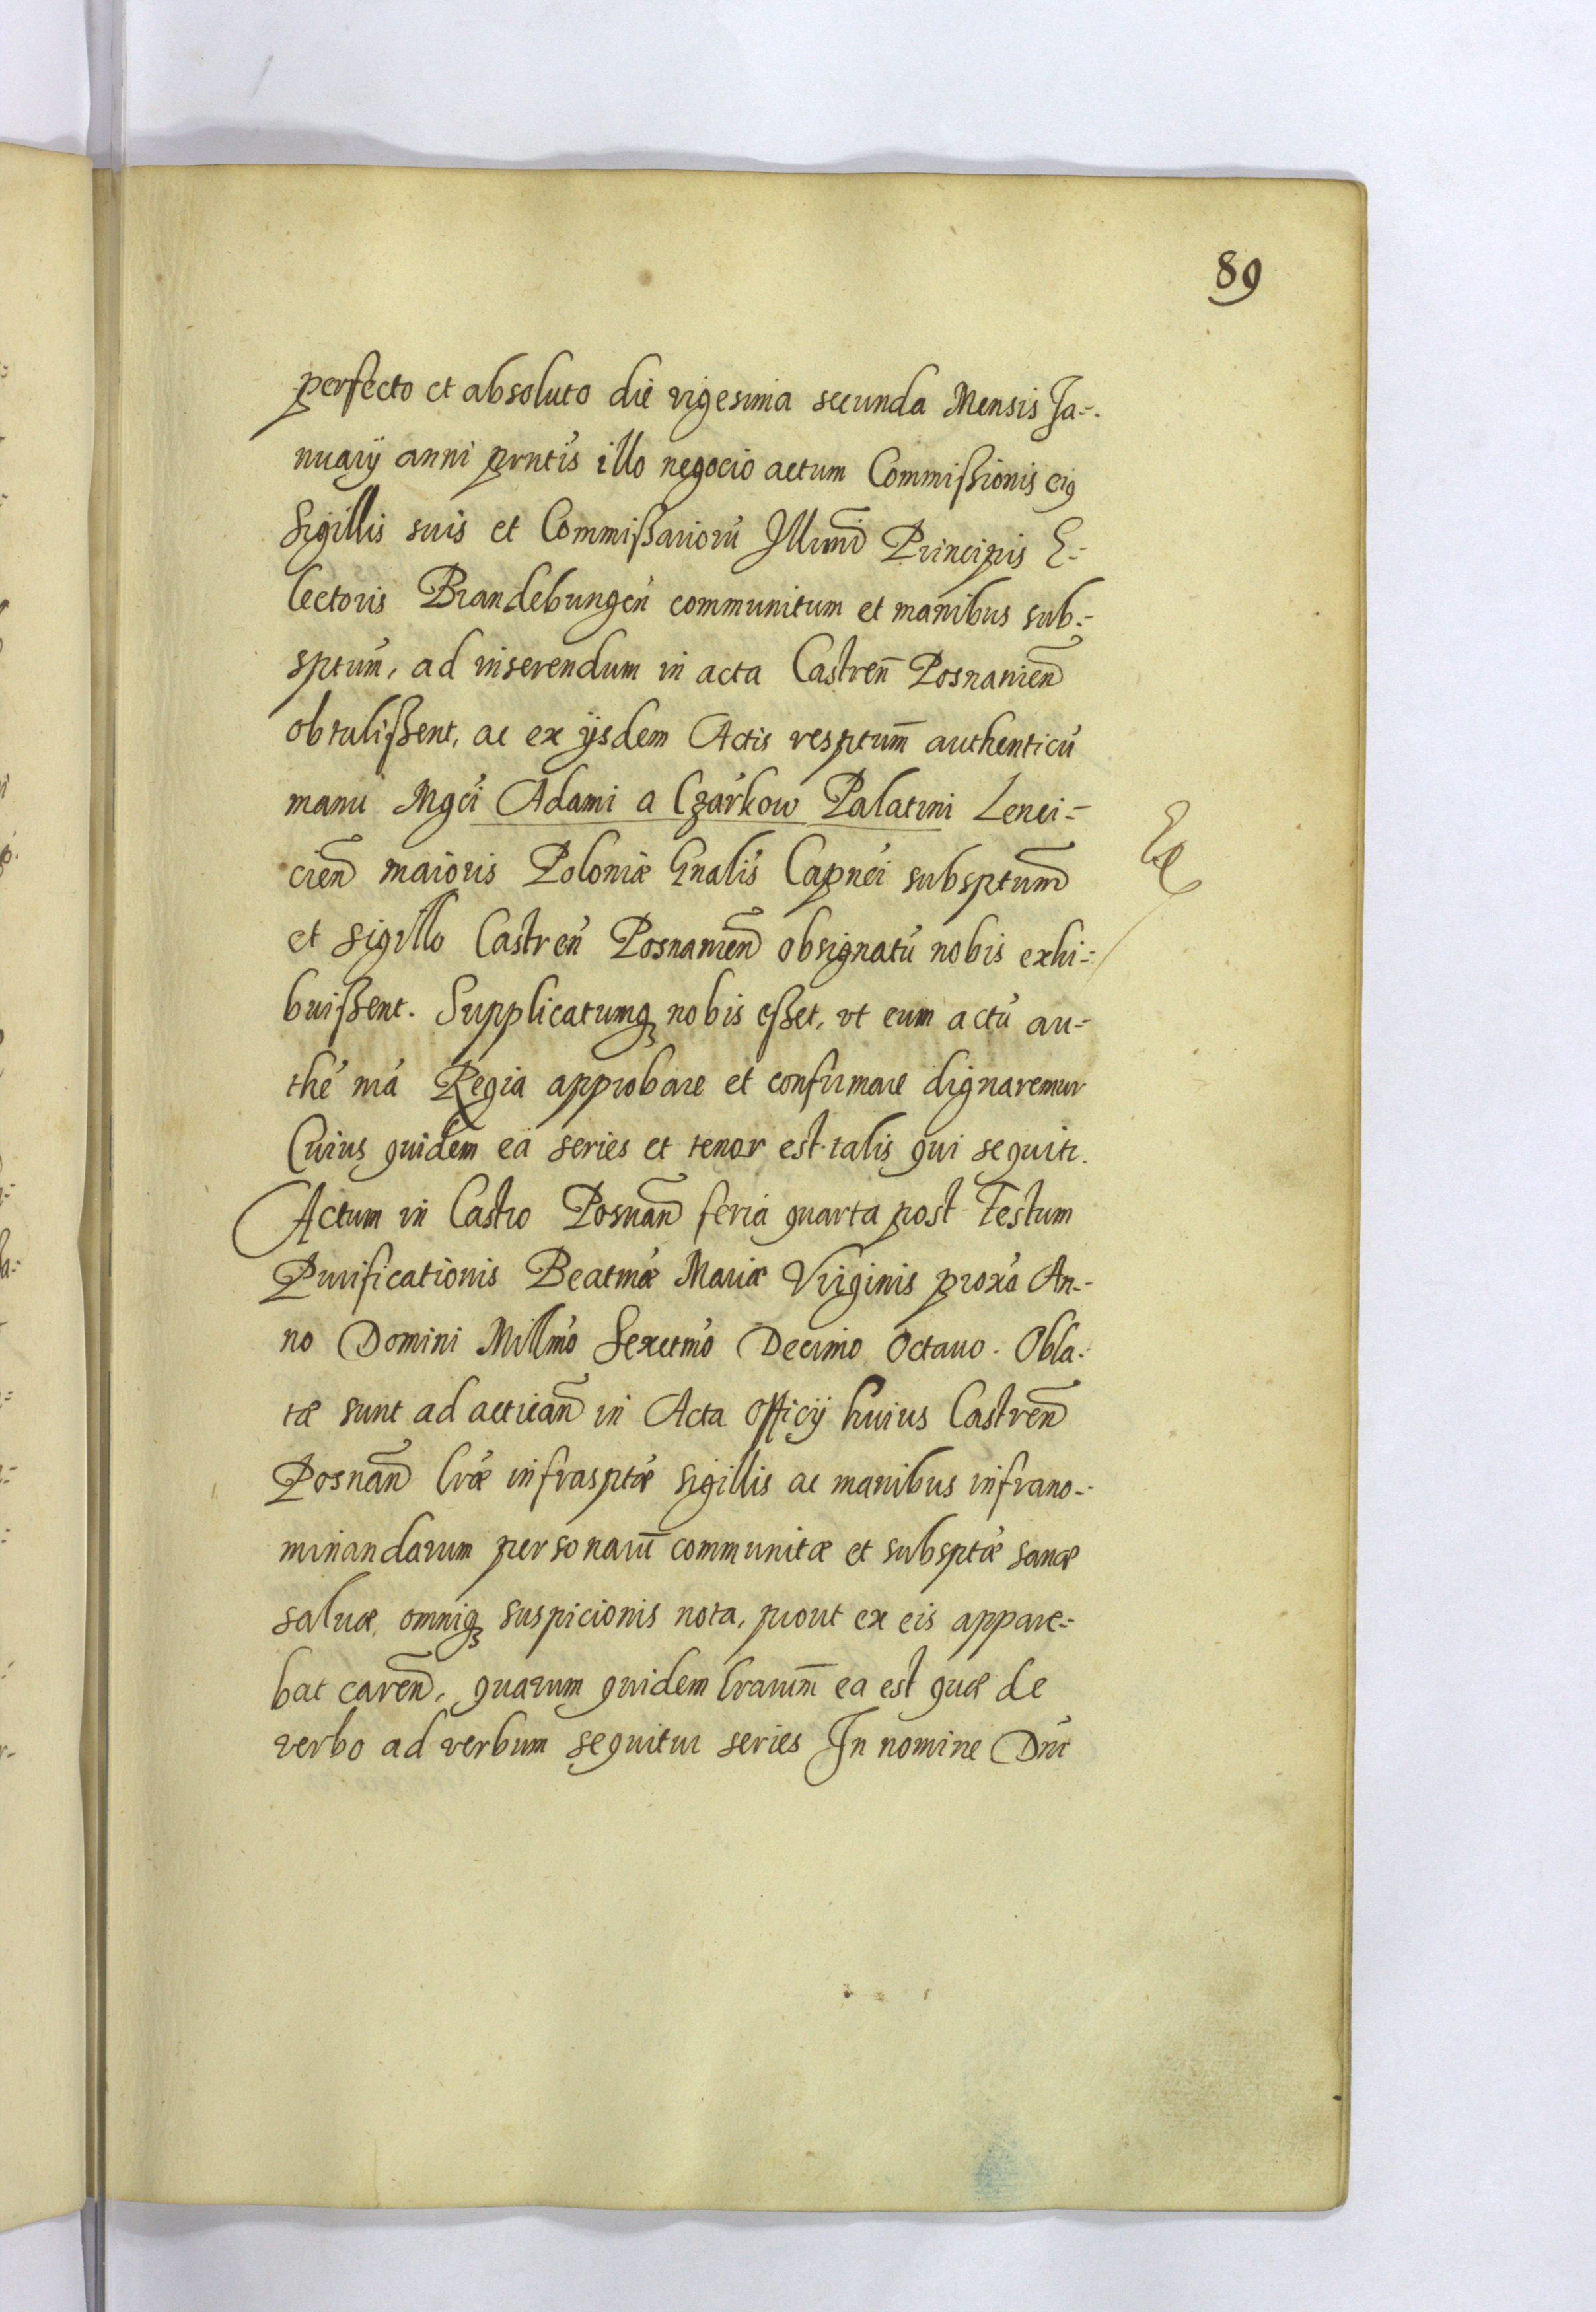 89
perfecto et absoluto die vigesima secunda Mensis Ja=
nuarij anni prntis illo negocio actum Commißionis eiꝰ
Sigillis suis et Commißariorū Illrmi Principis E=
lectoris Brandeburgeñ communitum et manibus sub=
sptum, ad inserendum in acta Castreñ Posnanieñ
obtulißent, ac ex ijsdem Actis resptum̄ authenticū
manu Mgci Adami a Czarkow Palatini Lenci=
cieñ maioris Poloniæ Gnalis Capnei subsptum
et sigillo Castreñ Posnanieñ obsignatū nobis exhi=
buißent. Supplicatumqꝫ nobis eßet, vt eum actū au=
the nrā Regia approbare et confirmare dignaremur
Cuius quidem ea series et tenor est talis qui sequitr.
Actum in Castro Posnañ feria quarta post Festum
Purificationis Beatmæ Mariæ Virginis proxa An=
no Domini Millmo Sexctmo Decimo Octauo. Obla=
tæ sunt ad acticañ in Acta Officij huius Castreñ
Posnañ lræ infrasptæ sigillis ac manibus infrano=
minandarum personarū communitæ et subsptæ sanæ
saluæ, omniqꝫ suspicionis nota, prout ex eis appare=
bat careñ, quarum quidem lrarum̄ ea est quæ de
verbo ad verbum sequitur series In nomine Dni